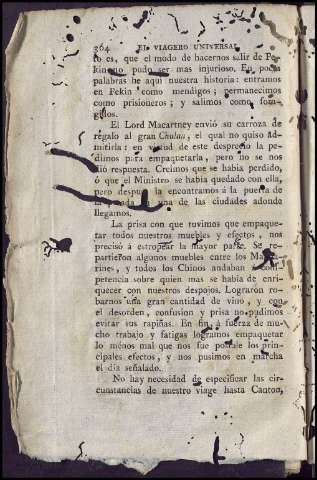 364 EL VIAGERO UNIVERSAL
to es, que el modo de hacernos salir de Pe-
kin no pudo ser mas injurioso. En pocas
palabras he aquí nuestra historia: entramos
en Pekin como mendigos; permanecimos
como prisioneros; y salimos como
El Lord Macartney envió su carroza de
regalo al gran Chulaa, el qual no quiso ad-
mitirla: en virtud de este desprecio la pe-
dimos para empaquetarla, pero no se nos
dió respuesta. Creimos que se habia perdido,
ó que el Ministro se habia quedado con ella,
pero despues la encontramos á la puerta de
la posada de una de las ciudades adonde
llegamos.
La prisa con que tuvimos que empaque-
tar todos nuestros muebles y efectos, nos
precisó á estropear la mayor parte. Se re-
partieron algunos muebles entre los Manda-
rines, y todos los Chinos andaban á com-
petencia sobre quien mas se habia de enri-
quecer con nuestros despojos. Lograron ro-
barnos una gran cantidad de vino, y con
el desorden, confusion y prisa no pudimos
evitar sus rapiñas. En fin, á fuerza de mu-
cho trabajo y fatigas logramos empaquetar
lo ménos mal que nos fue posible los prin-
cipales efectos, y nos pusimos en marcha
el dia señalado.
No hay necesidad de especificar las cir-
cunstancias de nuestro viage hasta Canton,